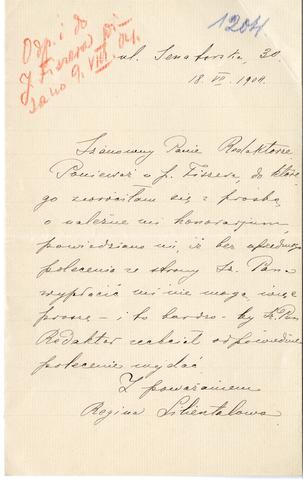 1204
Odp. i do
J. Fiszera pi-
sano 9. VIII 04.
ul. Senatorska, 30.
18. VII. 1904.
Szanowny Panie Redaktorze
Ponieważ u J. Fiszera, do które
go zwróciłam się z prośbą
o należne mi honorarjum,
powiedziano mi, iż bez
polecenia ze strony Sz. Pana
wypłacić mi nie mogą, więc
proszę – i to bardzo – by Sz. Pan
Redaktor zechciał odpowiednie
polecenie wydać.
Z poważaniem
Regina Lilientalowa